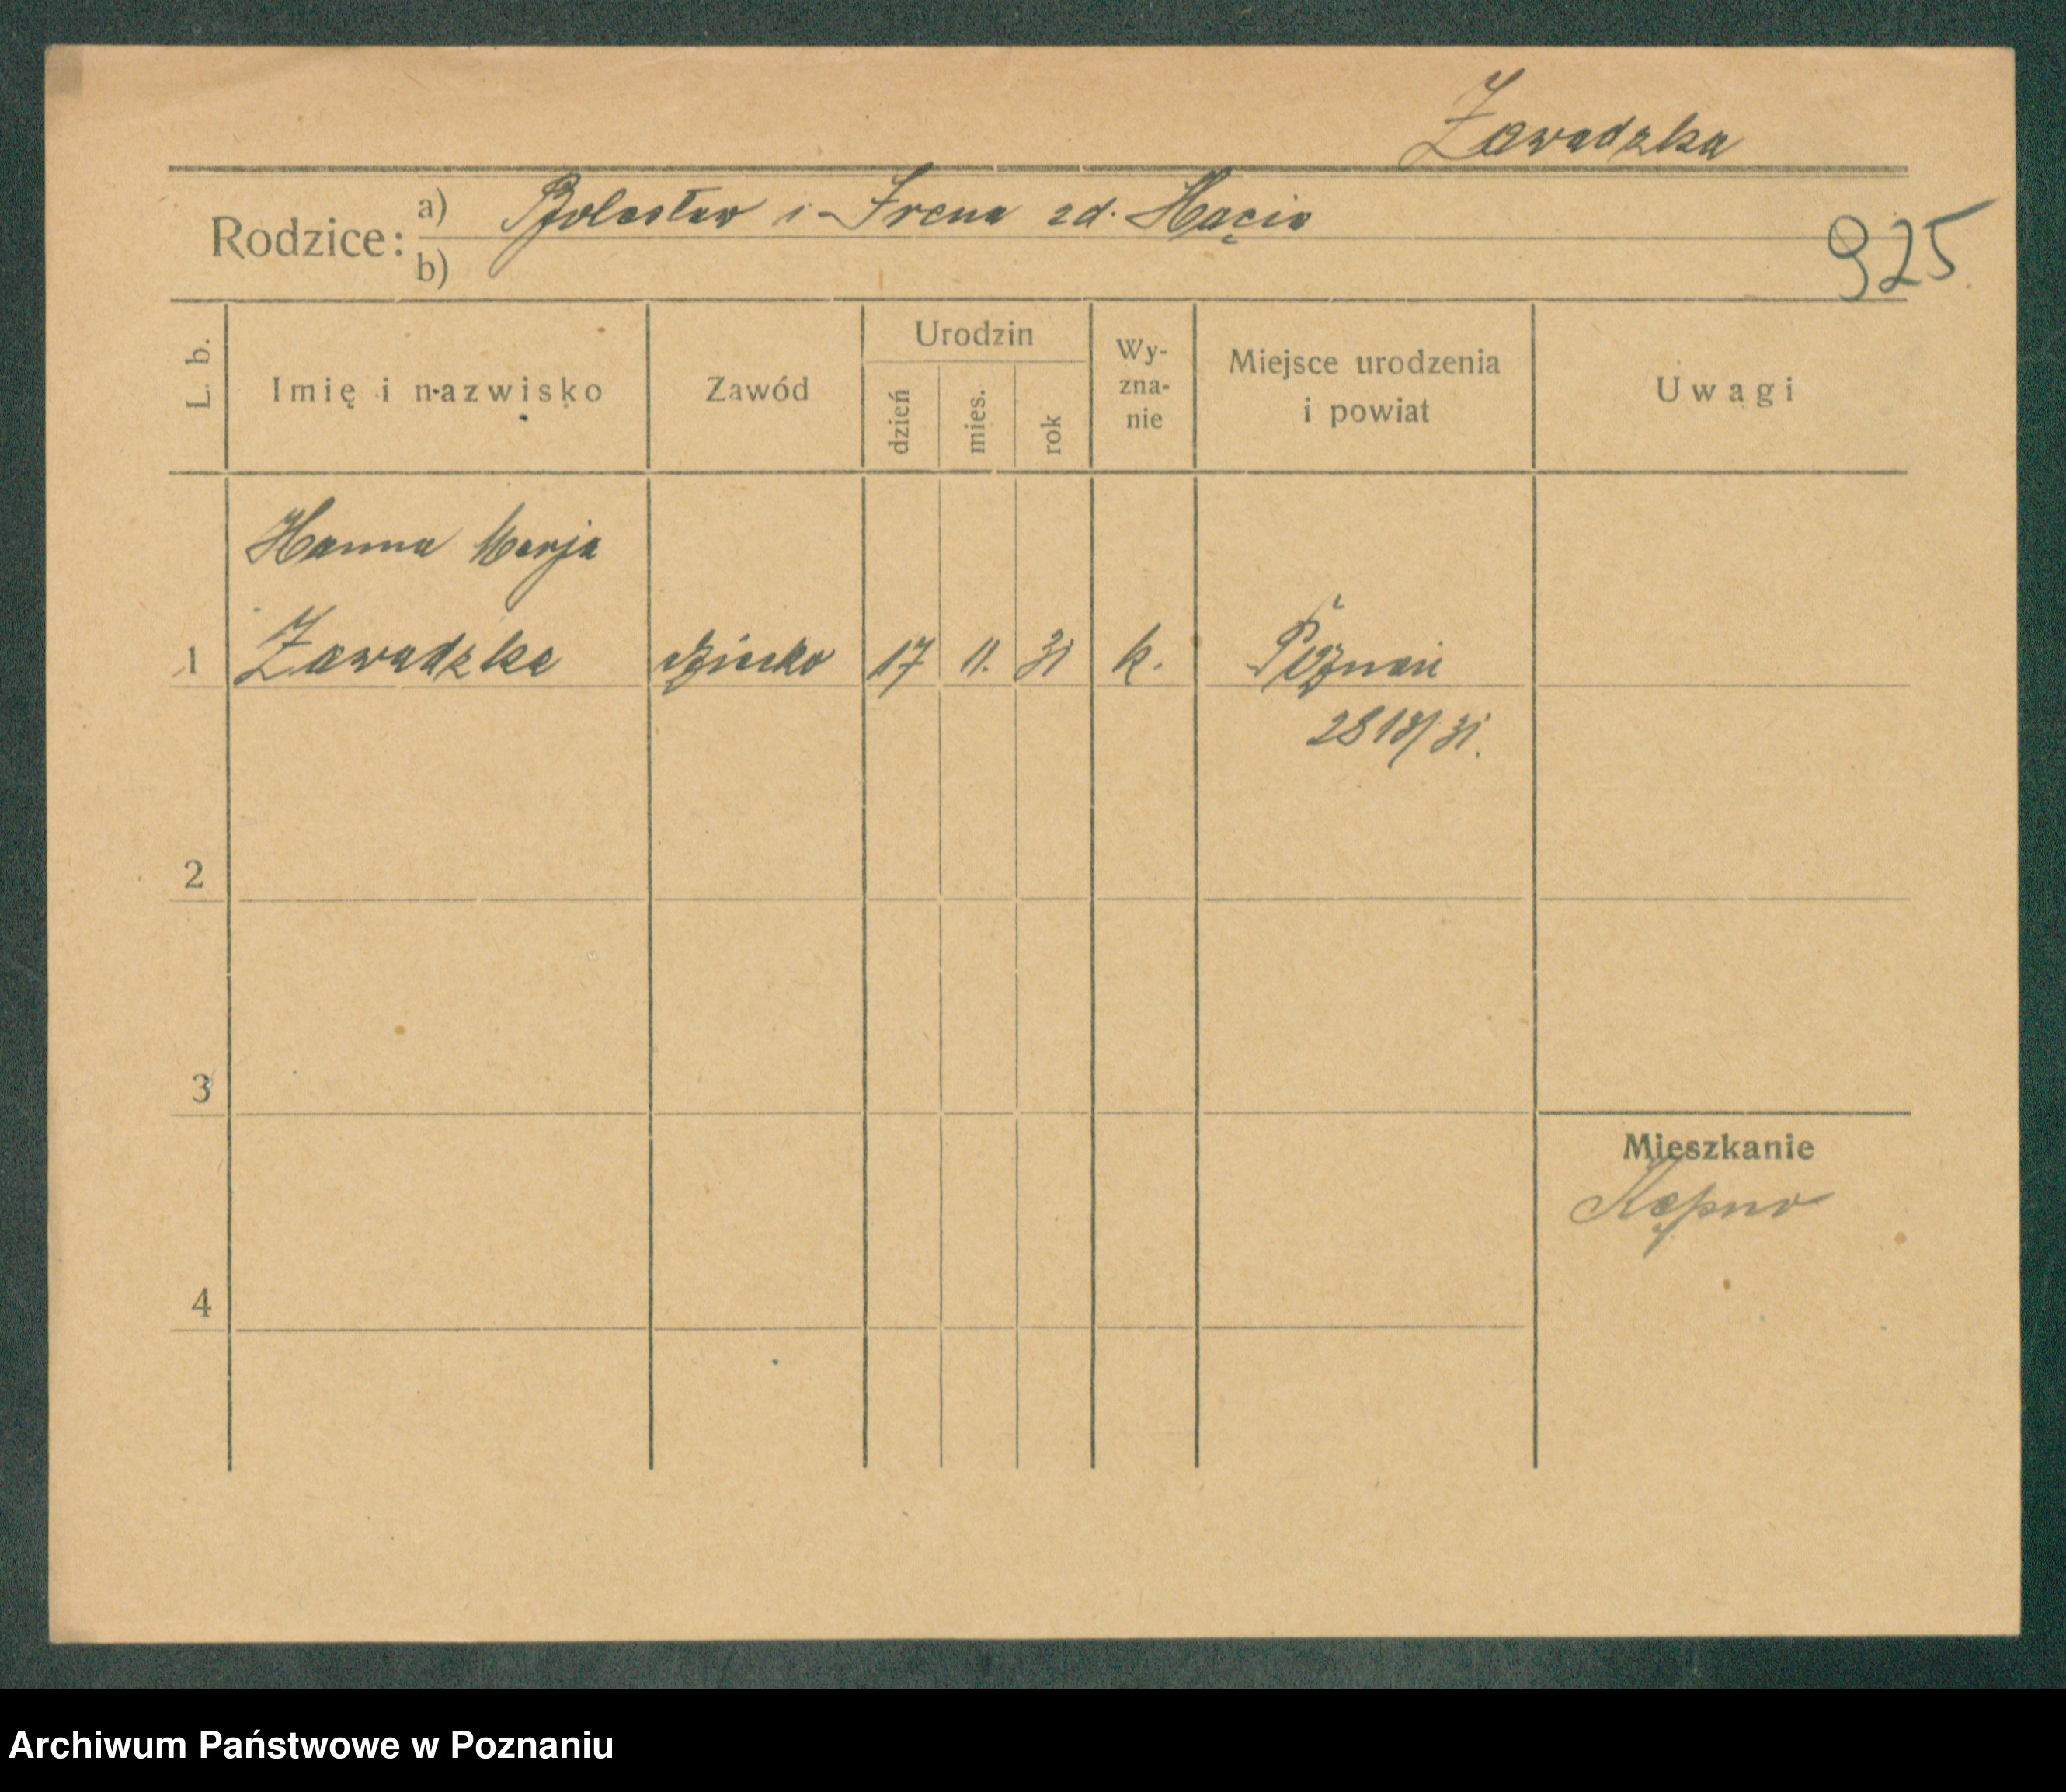 Zawadzka
Rodzice: a) Bolesław i Irena zd. Hącia
b)
925
L. b.
Imię i nazwisko
Zawód
Urodzin
dzień
mies.
rok
Wy-
zna-
nie
Miejsce urodzenia
i powiat
Uwagi
Hanna Marja
1 Zawadzka dziecko 17 11. 31 k. Poznań
2818/31.
2
3
Mieszkanie
Kępno
4
Archiwum Państwowe w Poznaniu